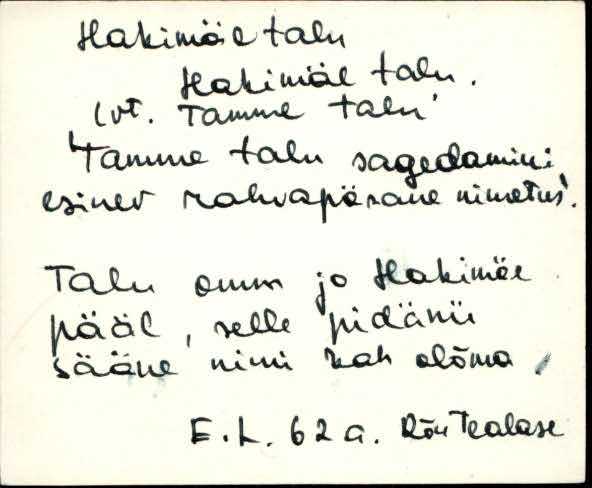 Hakimäe talu
Hakimäe talu.
(vt. Tamme talu'
'Tamme talu sagedamini
esinev rahvapärane nimetus'.
Talu omm jo Hakimäe
pääl, selle pidänü
sääne nimi kah olõma.
E.L. 62 a. Rõu